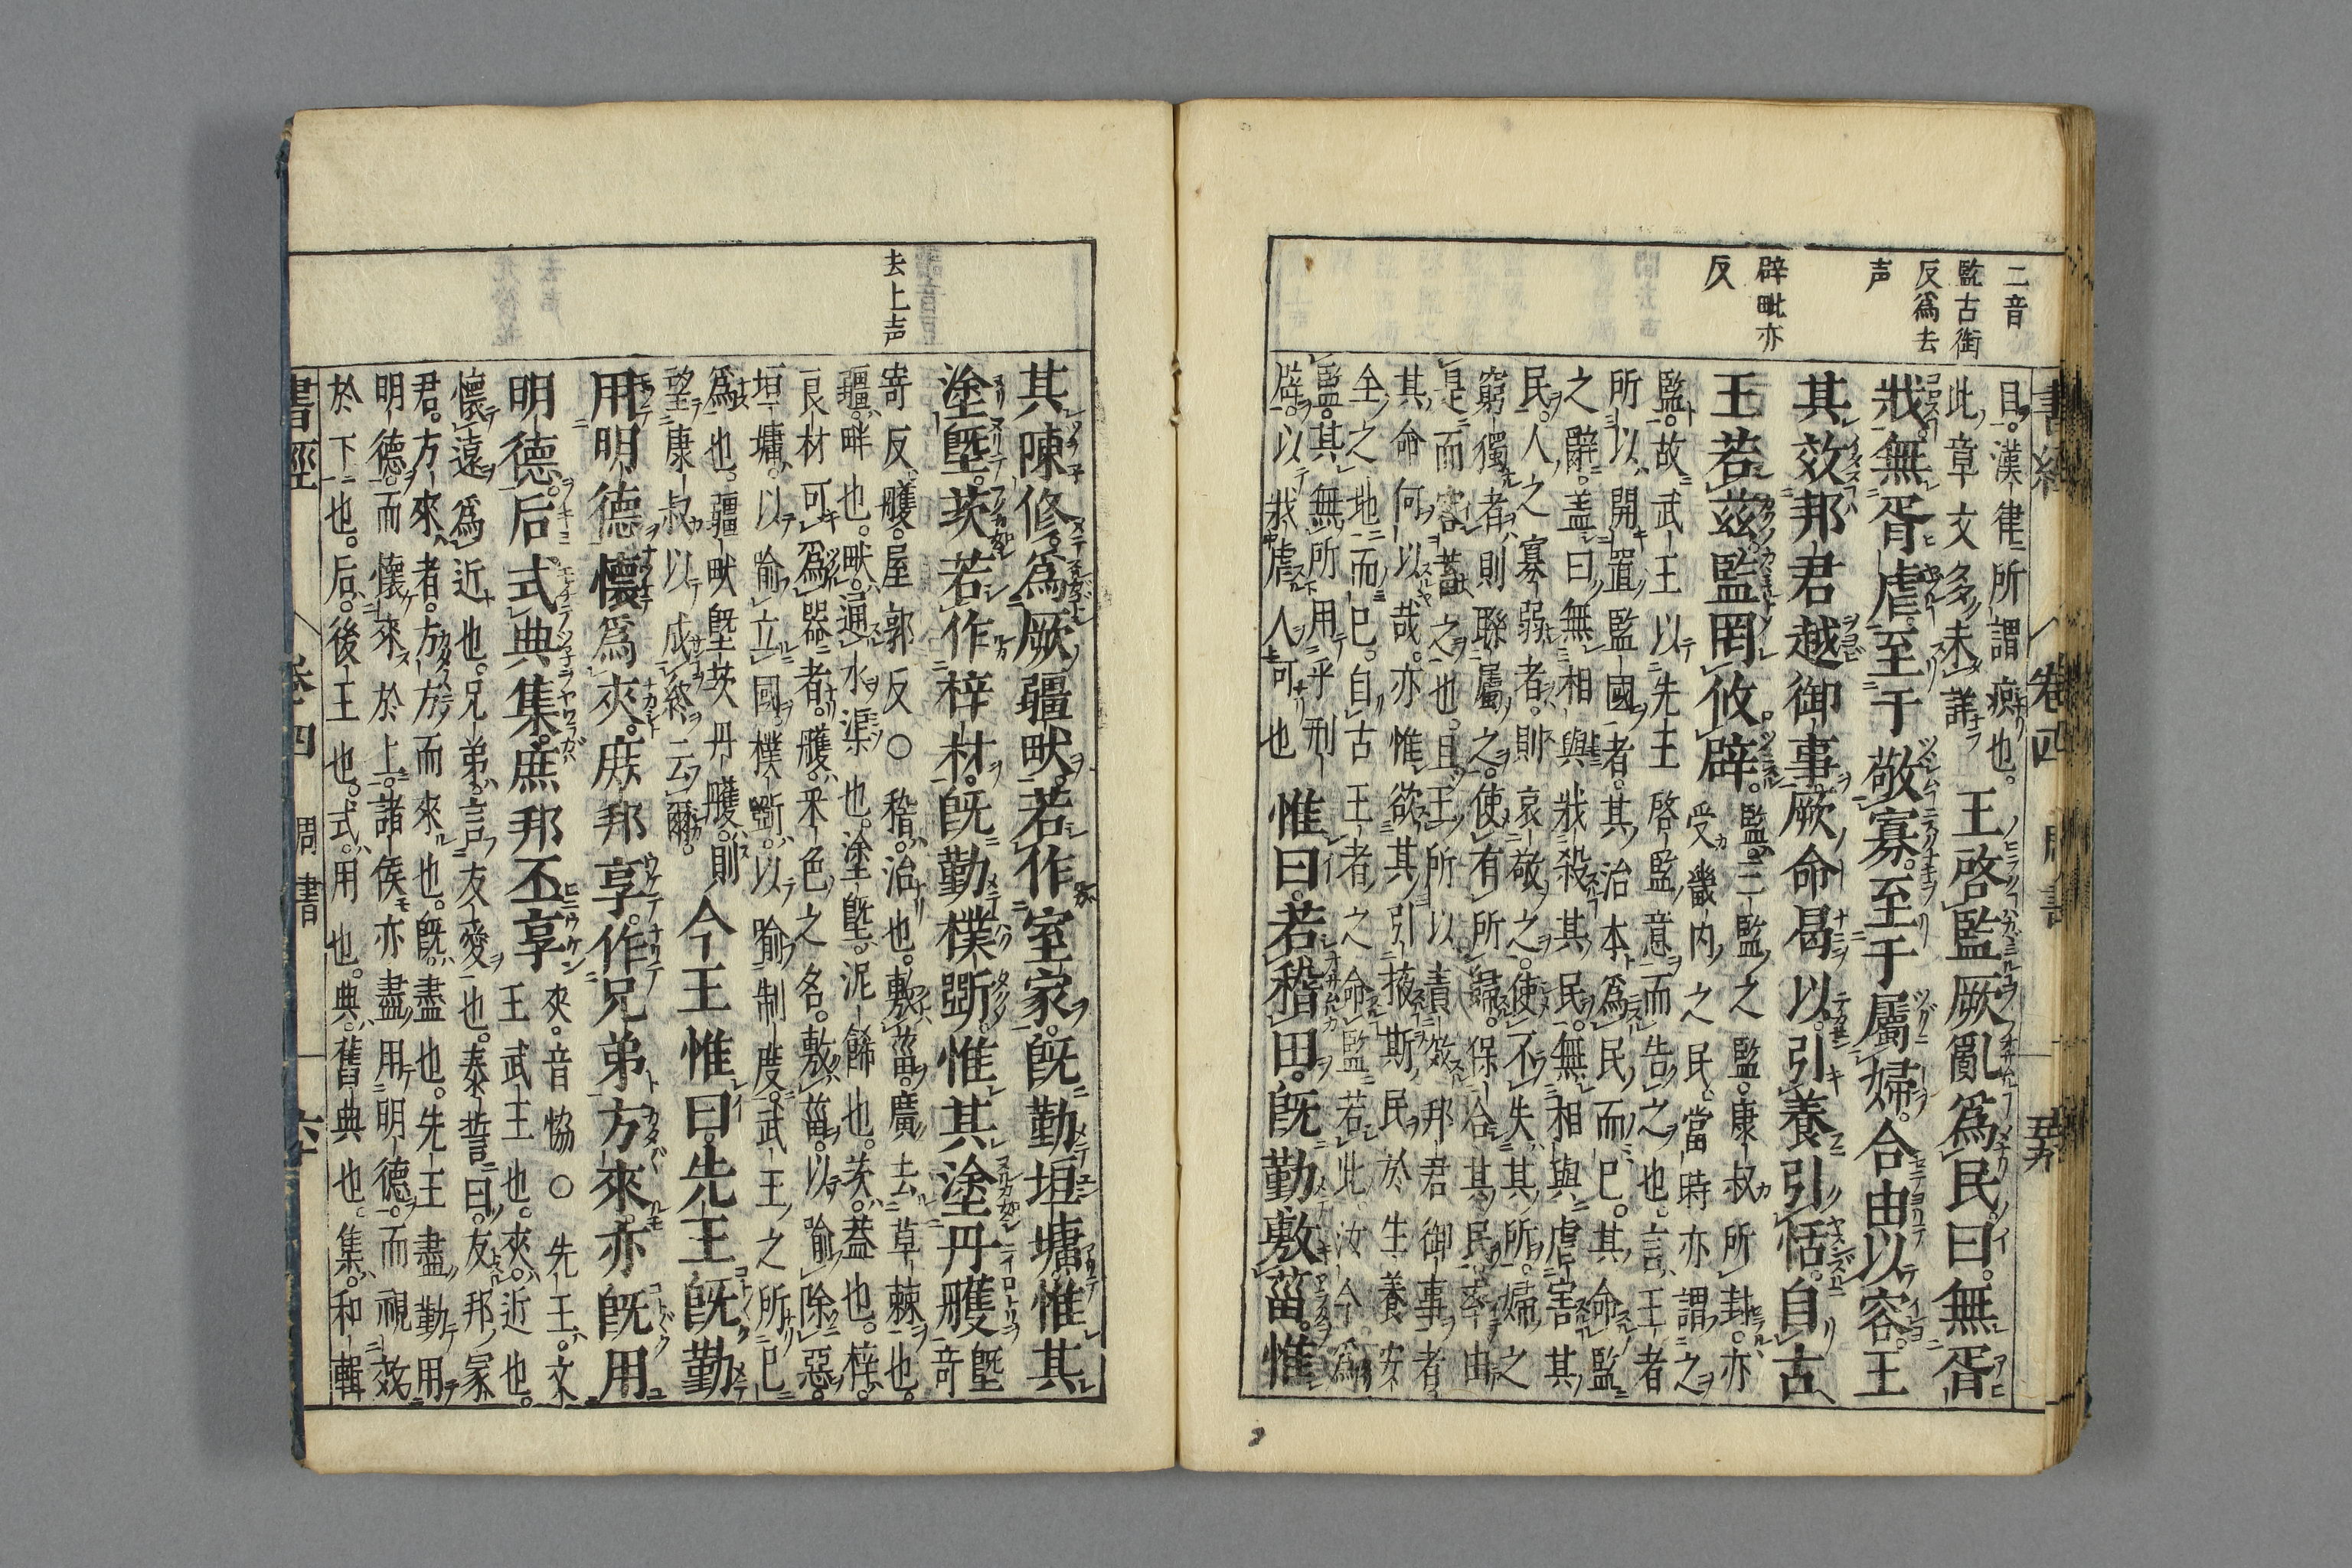 書經 卷四 周書 五十九
二音
監古銜
反爲去
声
辟毗亦
反
目。漢律所謂疻也。
此章文多未詳
王啓監厥亂爲民曰。無胥
戕無胥虐。至于敬寡。至于屬婦。合由以容。王
其效邦君越御事。厥命曷以。引養引恬。自古
王若茲監罔攸辟。
監。三監之監。康叔所封。亦
受畿內之民。當時亦謂之
監。故武王以先王啓監意而告之也。言王者
所以開置監國者。其治本爲民而已。其命監
之辭。蓋曰無相與戕殺其民。無相與虐害其
民。人之寡弱者。則哀敬之。使不失其所。婦之
窮獨者。則聯屬之。使有所歸。保合其民。率由
是而容蓄之也。且王所以責效邦君御事者
其命何以哉。亦惟欲其引掖斯民於生養安
全之地而已。自古王者之命監若此。汝今爲
監。其無所用乎刑
辟。以戕虐人可也
惟曰。若稽田。既勤敷菑。惟
去上声
其陳修。爲厥疆畎。若作室家。既勤垣墉。惟其
塗墍茨。若作梓材。既勤樸斲。惟其塗丹雘
墍
奇
寄反。雘。屋郭反○稽。治也。敷菑。廣去草棘也。
疆。畔也。畎。通水渠也。塗墍。泥飾也。茨。蓋也。梓。
良材可爲器者。雘。采色之名。敷菑。以喻除惡。
垣墉。以喻立國。樸斲。以喻制度。武王之所已
爲也。疆畎墍茨丹雘。則
望康叔以成終云爾。
今王惟曰。先王既勤
用明德懷爲夾。庶邦享。作兄弟方來。亦既用
明德。后式典集。庶邦丕享
夾。音協○先王。文
王武王也。夾。近也。
懷遠爲近也。兄弟。言友愛也。泰誓曰。友邦冢
君。方來者。方方而來也。既。盡也。先王盡勤用
明德。而懷來於上。諸侯亦盡用明德。而視效
於下也。后。後王也。式。用也。典。舊典也。集。和輯
書經 卷四 周書 六十